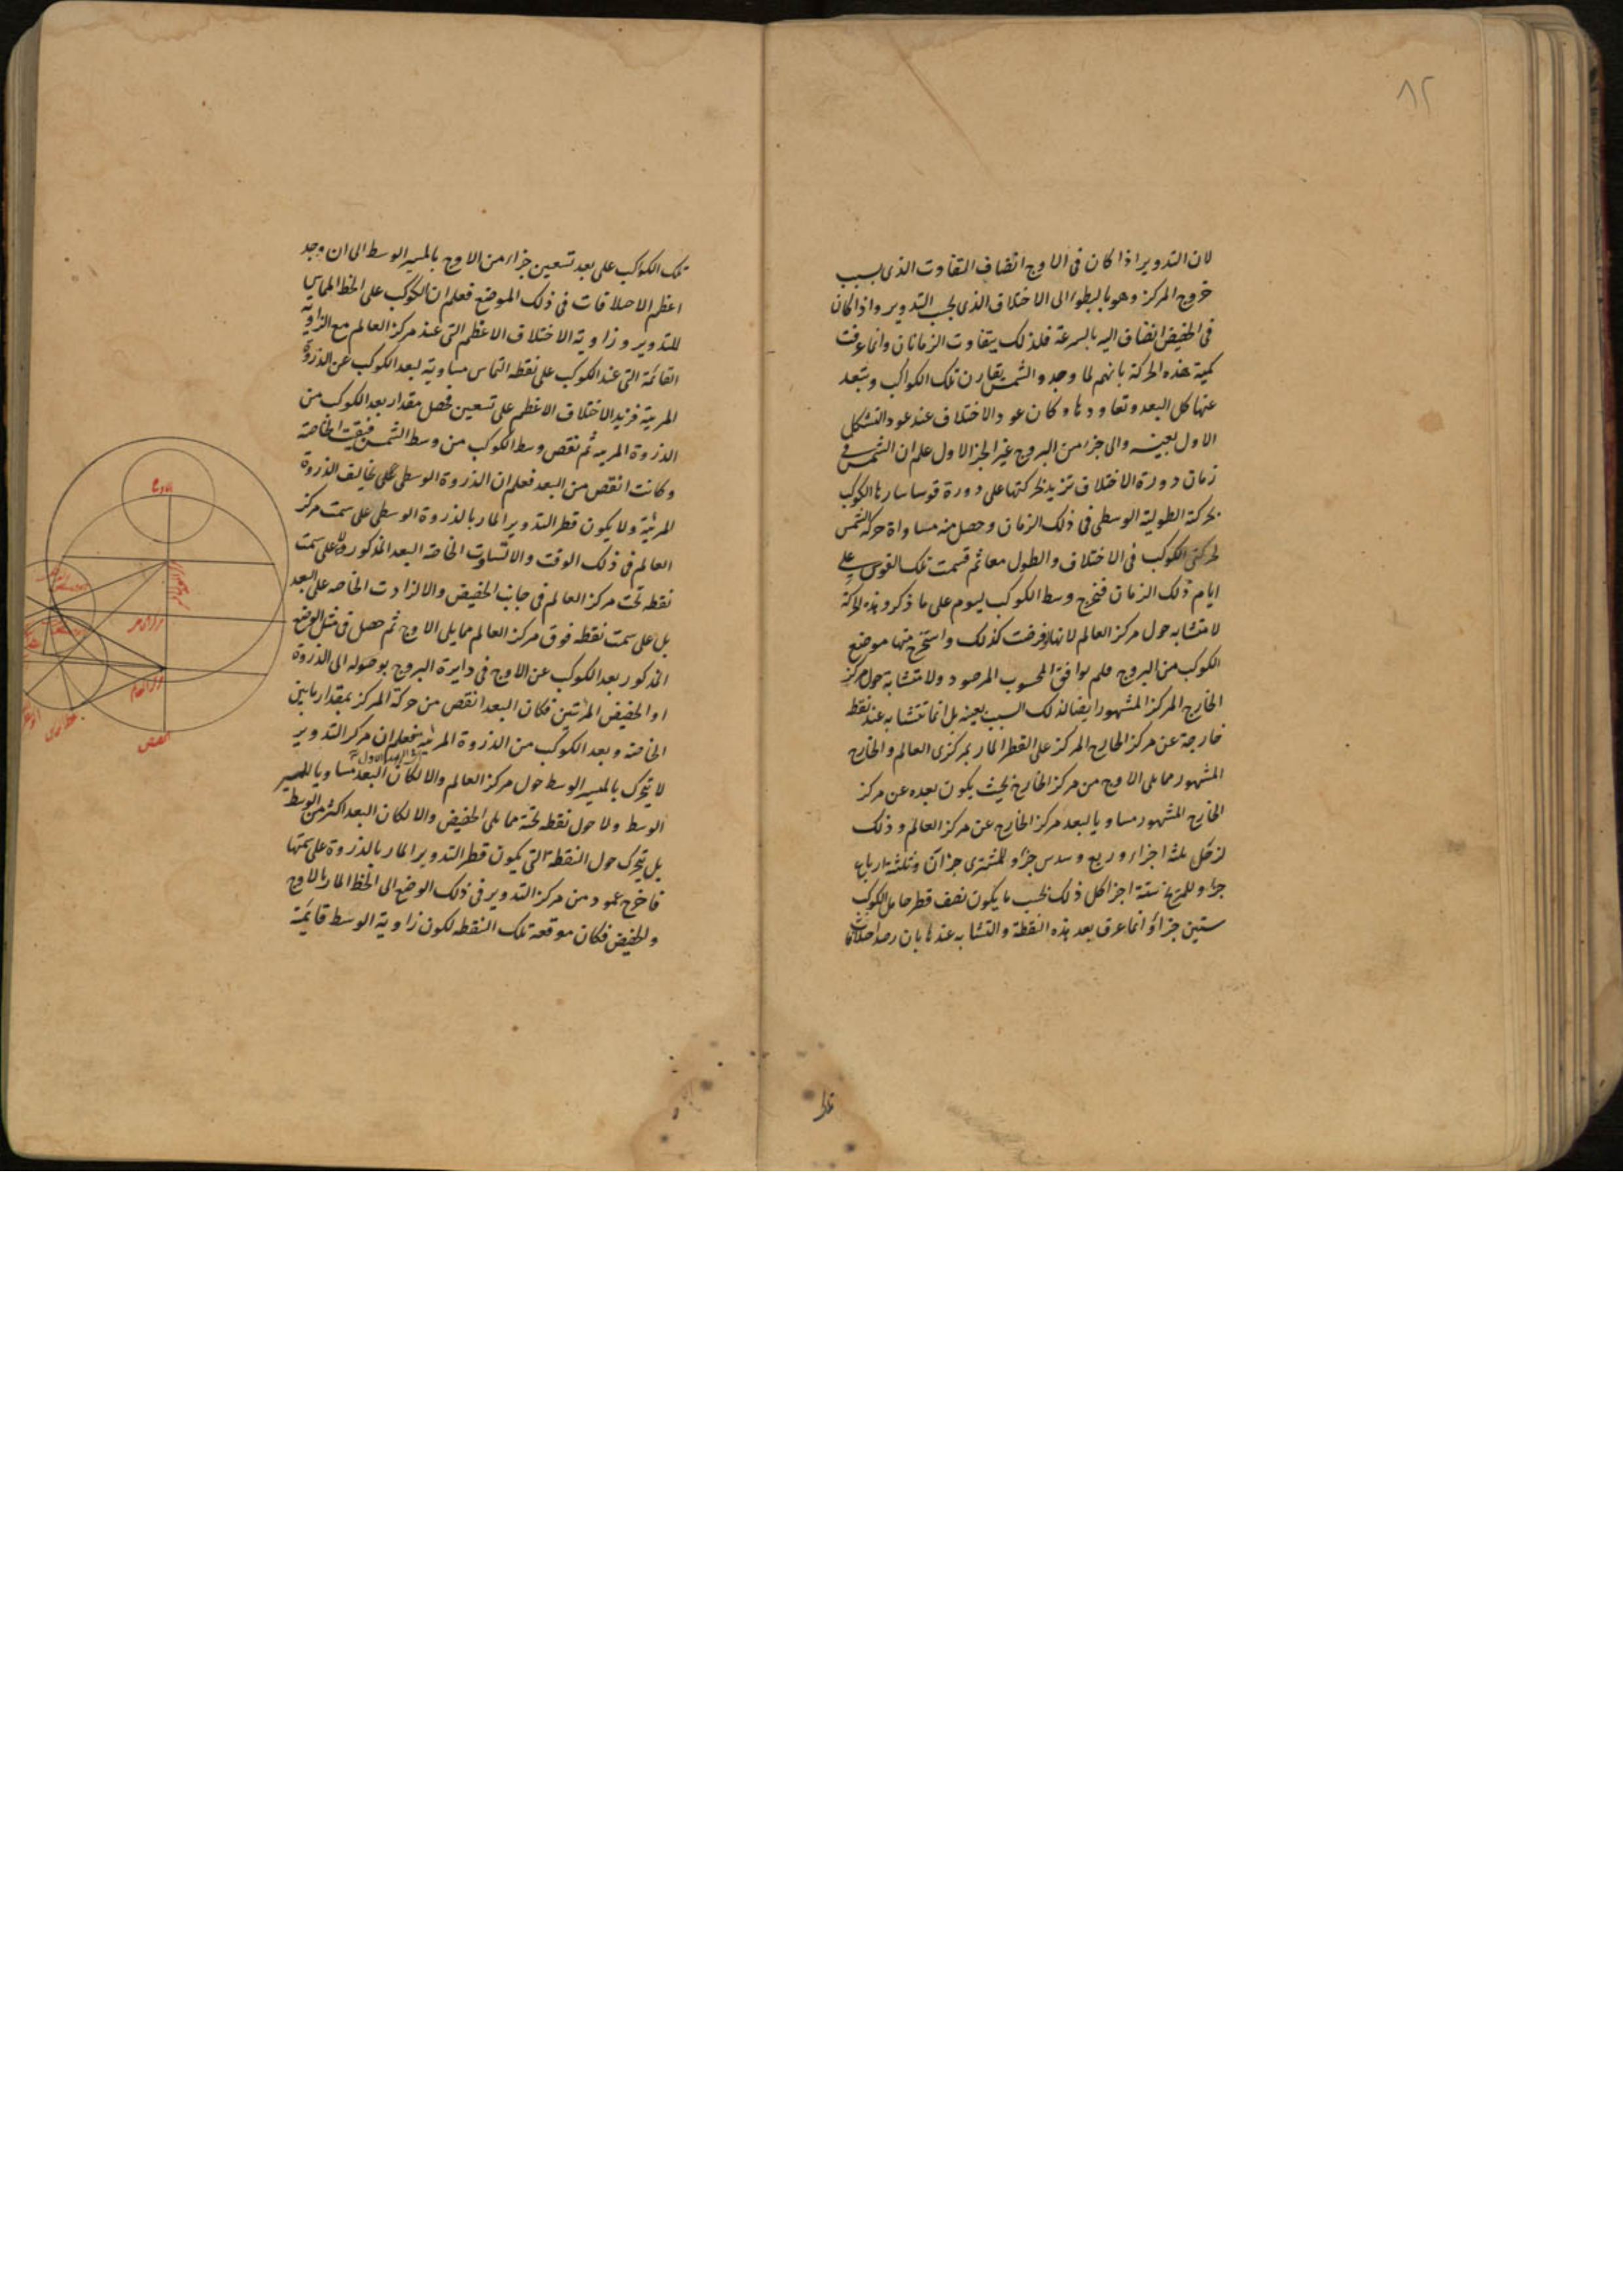 ٨٢
لان التدوير اذا كان فى الاوج انضاف التفاوت الذى بسبب
خروج المركز وهو بالبطوء الى الاختلاف الذى بحسب التدوير واذا كان
فى الحضيض انضاف اليه بالسرعة فلذلك يتفاوت الزمانان وانما عرفت
كمية هذه الحركة بانهم لما وجدوا الشمس يقارن تلك الكواكب وتبعد
عنها كل البعد وتعاودها وكان عود الاختلاف عند عود التشكل
الاول بعينه والى جزء من البروج غير الجزء الاول علم ان الشمس فى
زمان دورة الاختلاف تزيد بحركتها على دورة قوسا سارها الكوكب
بحركته الطولية الوسطى فى ذلك الزمان وحصل منه مساواة حركة الشمس
لحركتى الكوكب فى الاختلاف والطول معا ثم قسمت تلك القوس على
ايام ذلك الزمان فخرج وسط الكوكب ليوم على ما ذكر وهذه الحركة
لا متشابه حول مركز العالم لانها فرضت كذلك واستخرج منها موضع
الكوكب من البروج فلم يوافق المحسوب المرصود ولا متشابه حول مركز
الخارج المركز المشهور ايضا لذلك السبب بعينه بل انما تتشابه عند نقطة
خارجة عن مركز الخارج المركز على القطر المار بمركزى العالم والخارج
المشهور مما يلى الاوج من مركز الخارج بحيث يكون بعده عن مركز
الخارج المشهور مساويا لبعد مركز الخارج عن مركز العالم وذلك
لزحل ثلثة اجزاء وربع وسدس جزء وللمشترى جزآن وثلثة ارباع
جزء وللمريخ ستة اجزا كل ذلك بحسب ما يكون نصف قطر حامل الكوكب
ستين جزأ وانما عرف بعد هذه النقطة والتشابه عندها بان رصد اختلافات
تلك الكواكب على بعد تسعين جزاء من الاوج بالمسير الوسط الى ان وجد
اعظم الاختلافات فى ذلك الموضع فعلم ان الكوكب على الخط المماس
للتدوير وزاوية الاختلاف الاعظم التى عند مركز العالم مع الزاوية
القائمة التى عند الكوكب على نقطة التماس مساوية لبعد الكوكب عن الذروة
المرئية فزيد الاختلاف الاعظم على تسعين فحصل مقدار بعد الكوكب من
الذروة المرئيه ثم نقص وسط الكوكب من وسط الشمس فبقيت الخاصة
وكانت انقص من البعد فعلم ان الذروة الوسطى تخالف الذروة
المرئية ولا يكون قطر التدوير المار بالذروة الوسطى على سمت مركز
العالم فى ذلك الوقت والا لتساوت الخاصة البعد المذكور ولا على سمت
نقطه تحت مركز العالم فى جانب الحضيض والا لزادت الخاصه على البعد
بل على سمت نقطه فوق مركز العالم مما يلى الاوج ثم حصل فى مثل الوضع
المذكور بعد الكوكب عن الاوج فى دايرة البروج بوصوله الى الذروة
او الحضيض المرئيتين فكان البعد انقص من حركة المركز بمقدار ما بين
الخاصة وبعد الكوكب من الذروة المرئية فعلم ان مركز التدوير
لا يتحرك بالمسير الوسط حول مركز العالم والا لكان البعد مساويا للمسير
الوسط ولا حول نقطه تحته مما يلى الحضيض والا لكان البعد اكثر من الوسط
بل يتحرك حول النقطة التى يكون قطر التدوير المار بالذروة على سمتها
فاخرج عمود من مركز التدوير فى ذلك الوضع الى الخط المار بالاوج
والحضيض فكان موقعه تلك النقطه لكون زاوية الوسط قايمة
الاوج
مركز العالم
الحضيض